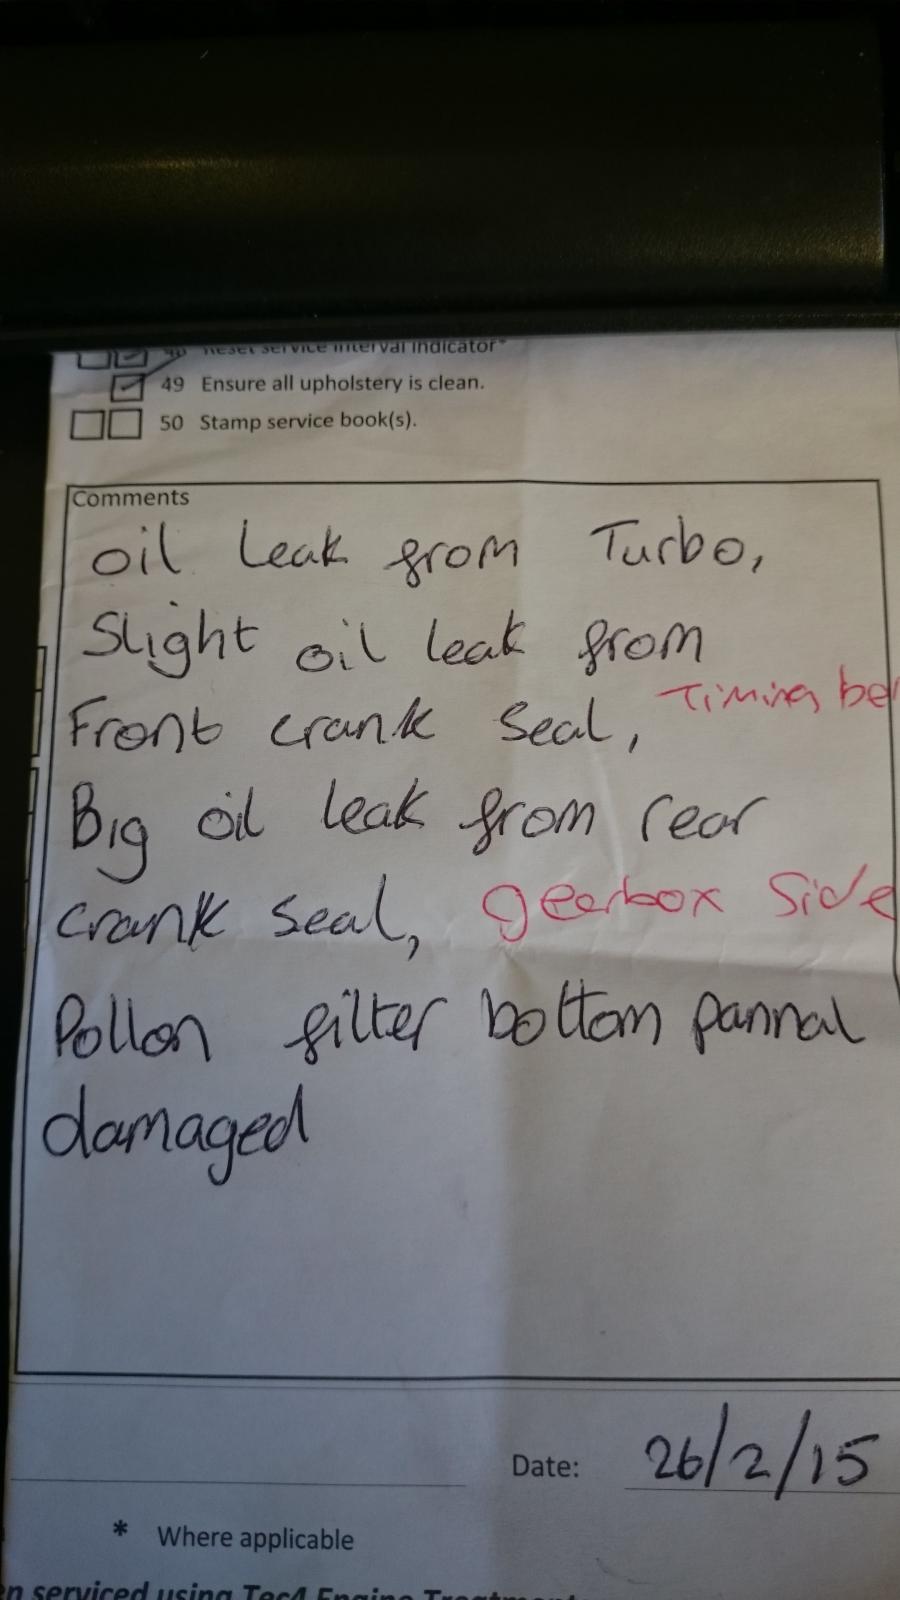 Reset service interval indicator*
49 Ensure all upholstery is clean.
50 Stamp service book(s).
Comments
oil leak from Turbo,
Slight oil leak from
Front crank seal, Timing bel
Big oil leak from rear
crank seal, gearbox Side
Pollon filter bottom pannal
damaged
Date: 26/2/15
* Where applicable
en serviced using Tec4 Engine Treatment